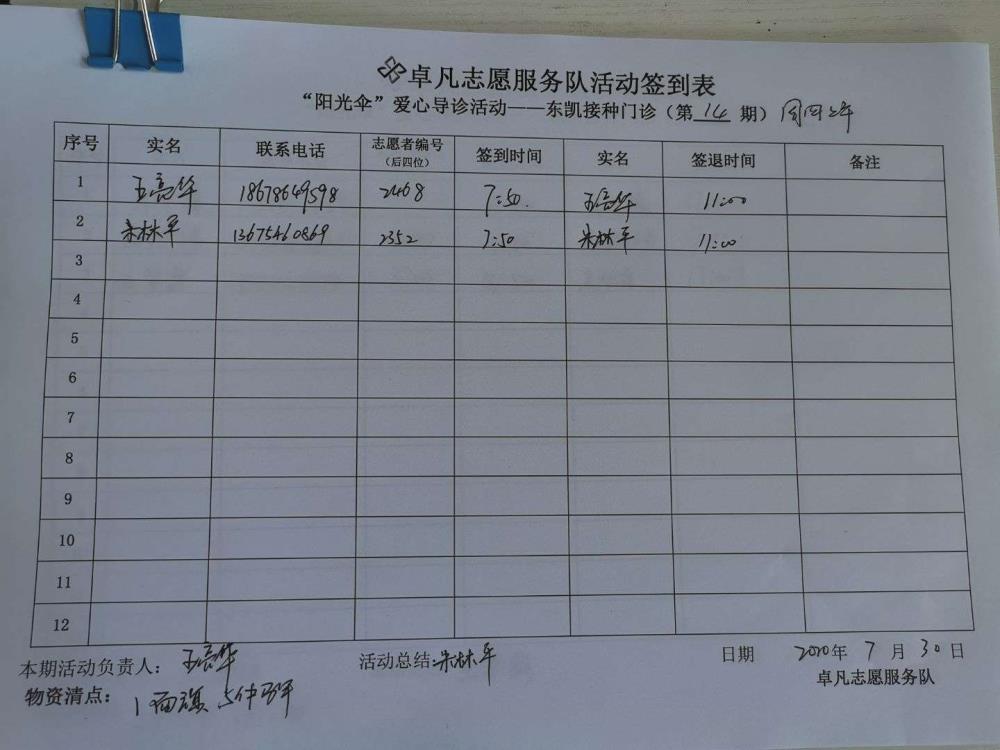 卓凡志愿服务队活动签到表
“阳光伞”爱心导诊活动——东凯接种门诊（第 14 期）周四上午
序号 实名 联系电话 志愿者编号（后四位） 签到时间 实名 签退时间 备注
1 王亮华 18678649598 2468 7:50. 王亮华 11:00
2 朱林平 13675460869 2352 7:50 朱林平 11:00
3
4
5
6
7
8
9
10
11
12
本期活动负责人： 王亮华 活动总结: 朱林平 日期 2020年 7 月 30 日
物资清点： 1面旗、5件 卓凡志愿服务队